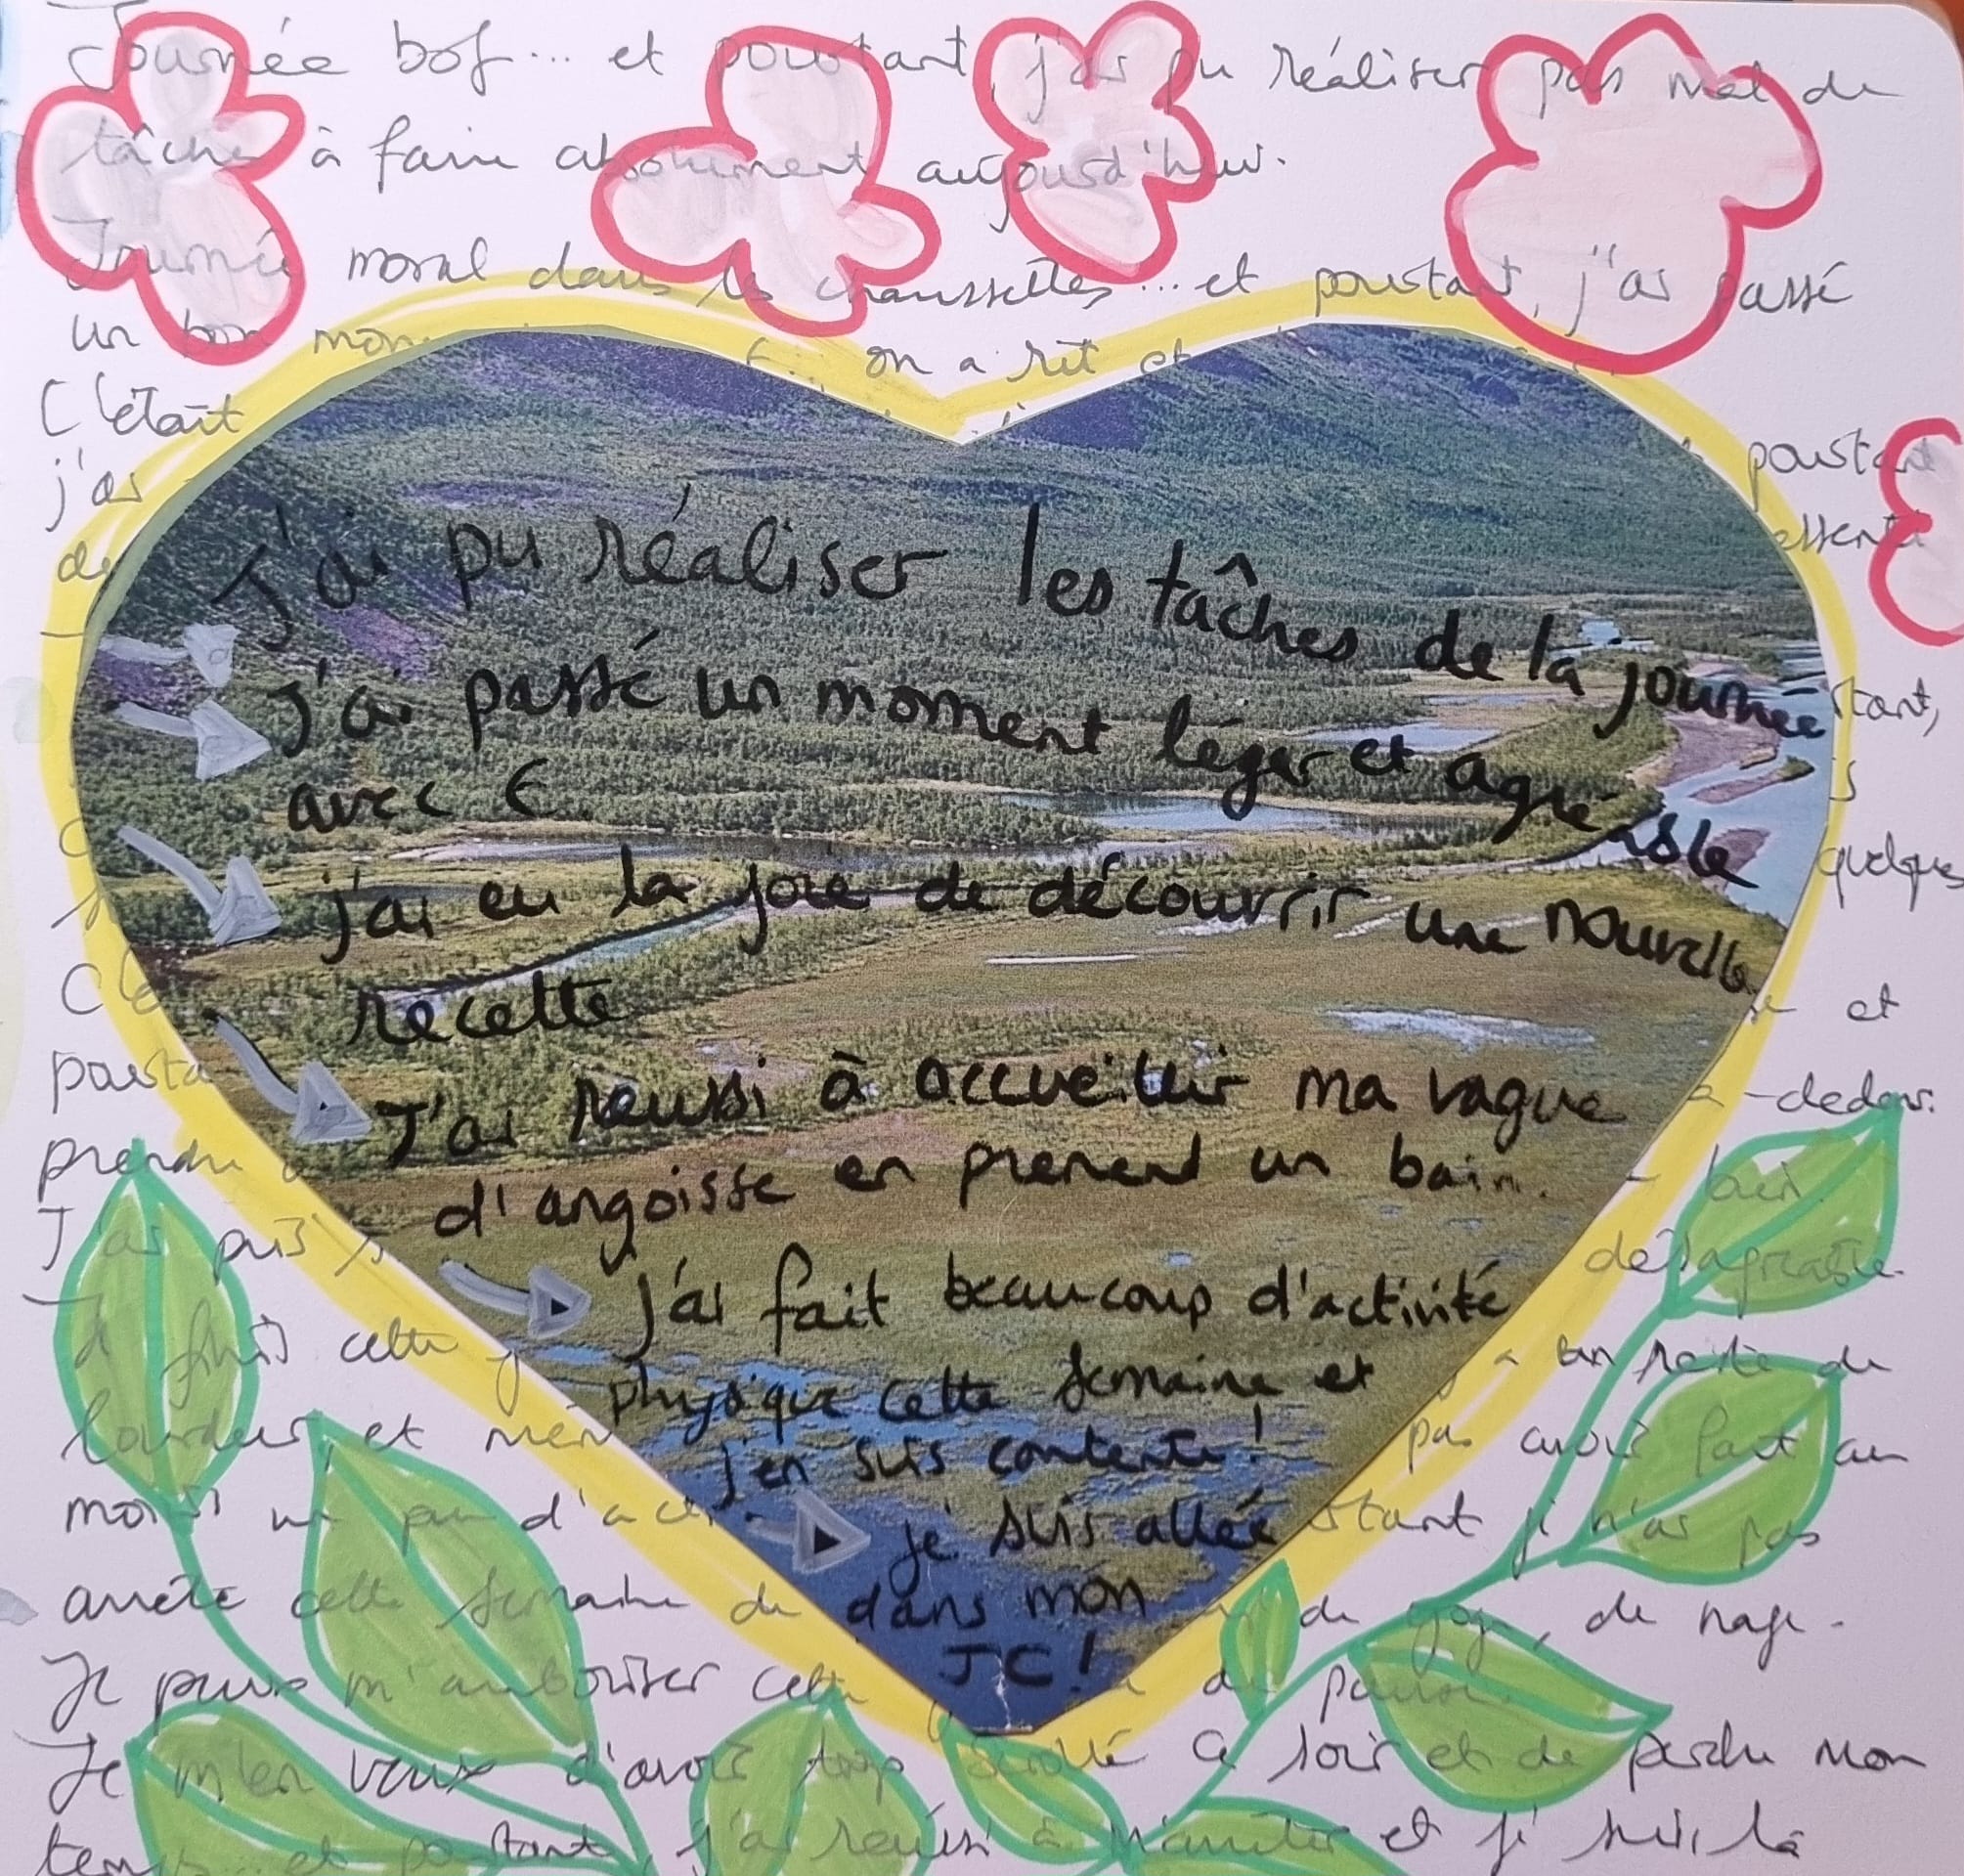 Journée bof... et pourtant, j'ai pu réaliser pas mal de
tâches à faire absolument aujourd'hui.
Journée moral dans les chaussettes... et pourtant, j'ai passé
un bon mom on a rit et
C'était
j'ai pourtant
de essent
J'ai pu réaliser les tâches de la journée
J'ai passé un moment léger et agréable
tant,
avec E
quelques
j'ai eu la joie de découvrir une nouvelle
recette
et
pourta
J'ai reussi à accueillir ma vague
-dedans.
prendre bain.
d'angoisse en prenend un bain.
J'ai puis désagréable.
j'ai fait beaucoup d'activité
Je finis cette un reste de
physique cette semaine et
lourdeur, et mêm pas avoir fait au
j'en suis contente!
moins un peu d'acti tant je n'ai pas
je suis allée
arrêté cette semaine de de yoga, de nage.
dans mon
JC!
Je peux m'autoriser cette de pause.
Je m'en veux d'avoir trop scrollé ce soir et de perdre mon
temps... et pourtant, j'ai réussi à m'arrêter et je suis là